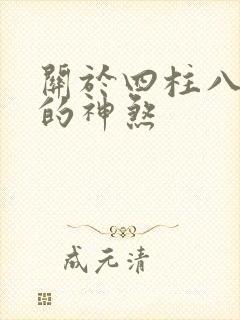 關於四柱八
的神煞
成元清